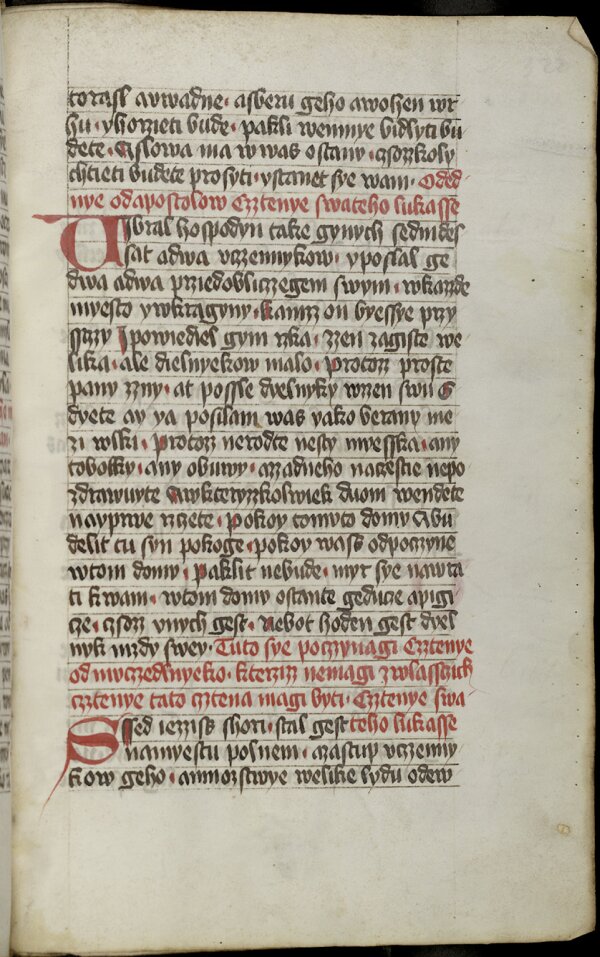 to rasl a uwadne · a sberu geho a wohen wr
hu · y horzieti bude · pakli wemnye bidlyti bu
dete · A slowa ma w was ostanu · czsozkoly
chtieti budete prosyti · y stanet sye wam · Oded
nye od apostolow Cztenye swateho lukasse
Wibral hospodyn take gynych sedmdes
sat a dwa vczennykow · y poslal ge
dwa a dwa przied obliczegem swym · w kazde
myesto y w kragyny · kamz on byessye przy
sstzy I powiediel gym rzka · zzen zagiste we
lika · ale dielnyekow malo · Protoz proste
pany zzny · at possle dyelnyky wzen swu
dyete ay ya posilam was yako berany me
zi wlki · Protoz nerodte nesty myesska · any
tobolky · any obuwy · a zadneho na czestie nepo
zdrawuyte A w kteryzkolwiek duom wendete
nayprwe rzcete · Pokoy tomuto domu A bu
delit tu syn pokoge · pokoy wass odpoczyne
w tom domu · Paklit nebude · myr sye nawra
ti k wam · w tom domu ostante geduce a pigi
cze · czsoz vnych gest · Nebot hoden gest dyel
nyk mzdy swey · Tuto sye poczynagi Cztenye
od muczedlnyeko · kterziz nemagi zwlasstich
cztenye tato cztena magi byti · Cztenye swa
Ssed iezziss shori · stal gest teho lukasse
na myestu polnem · a zastup vczenny
kow geho · a mnozstwye welike lydu odew